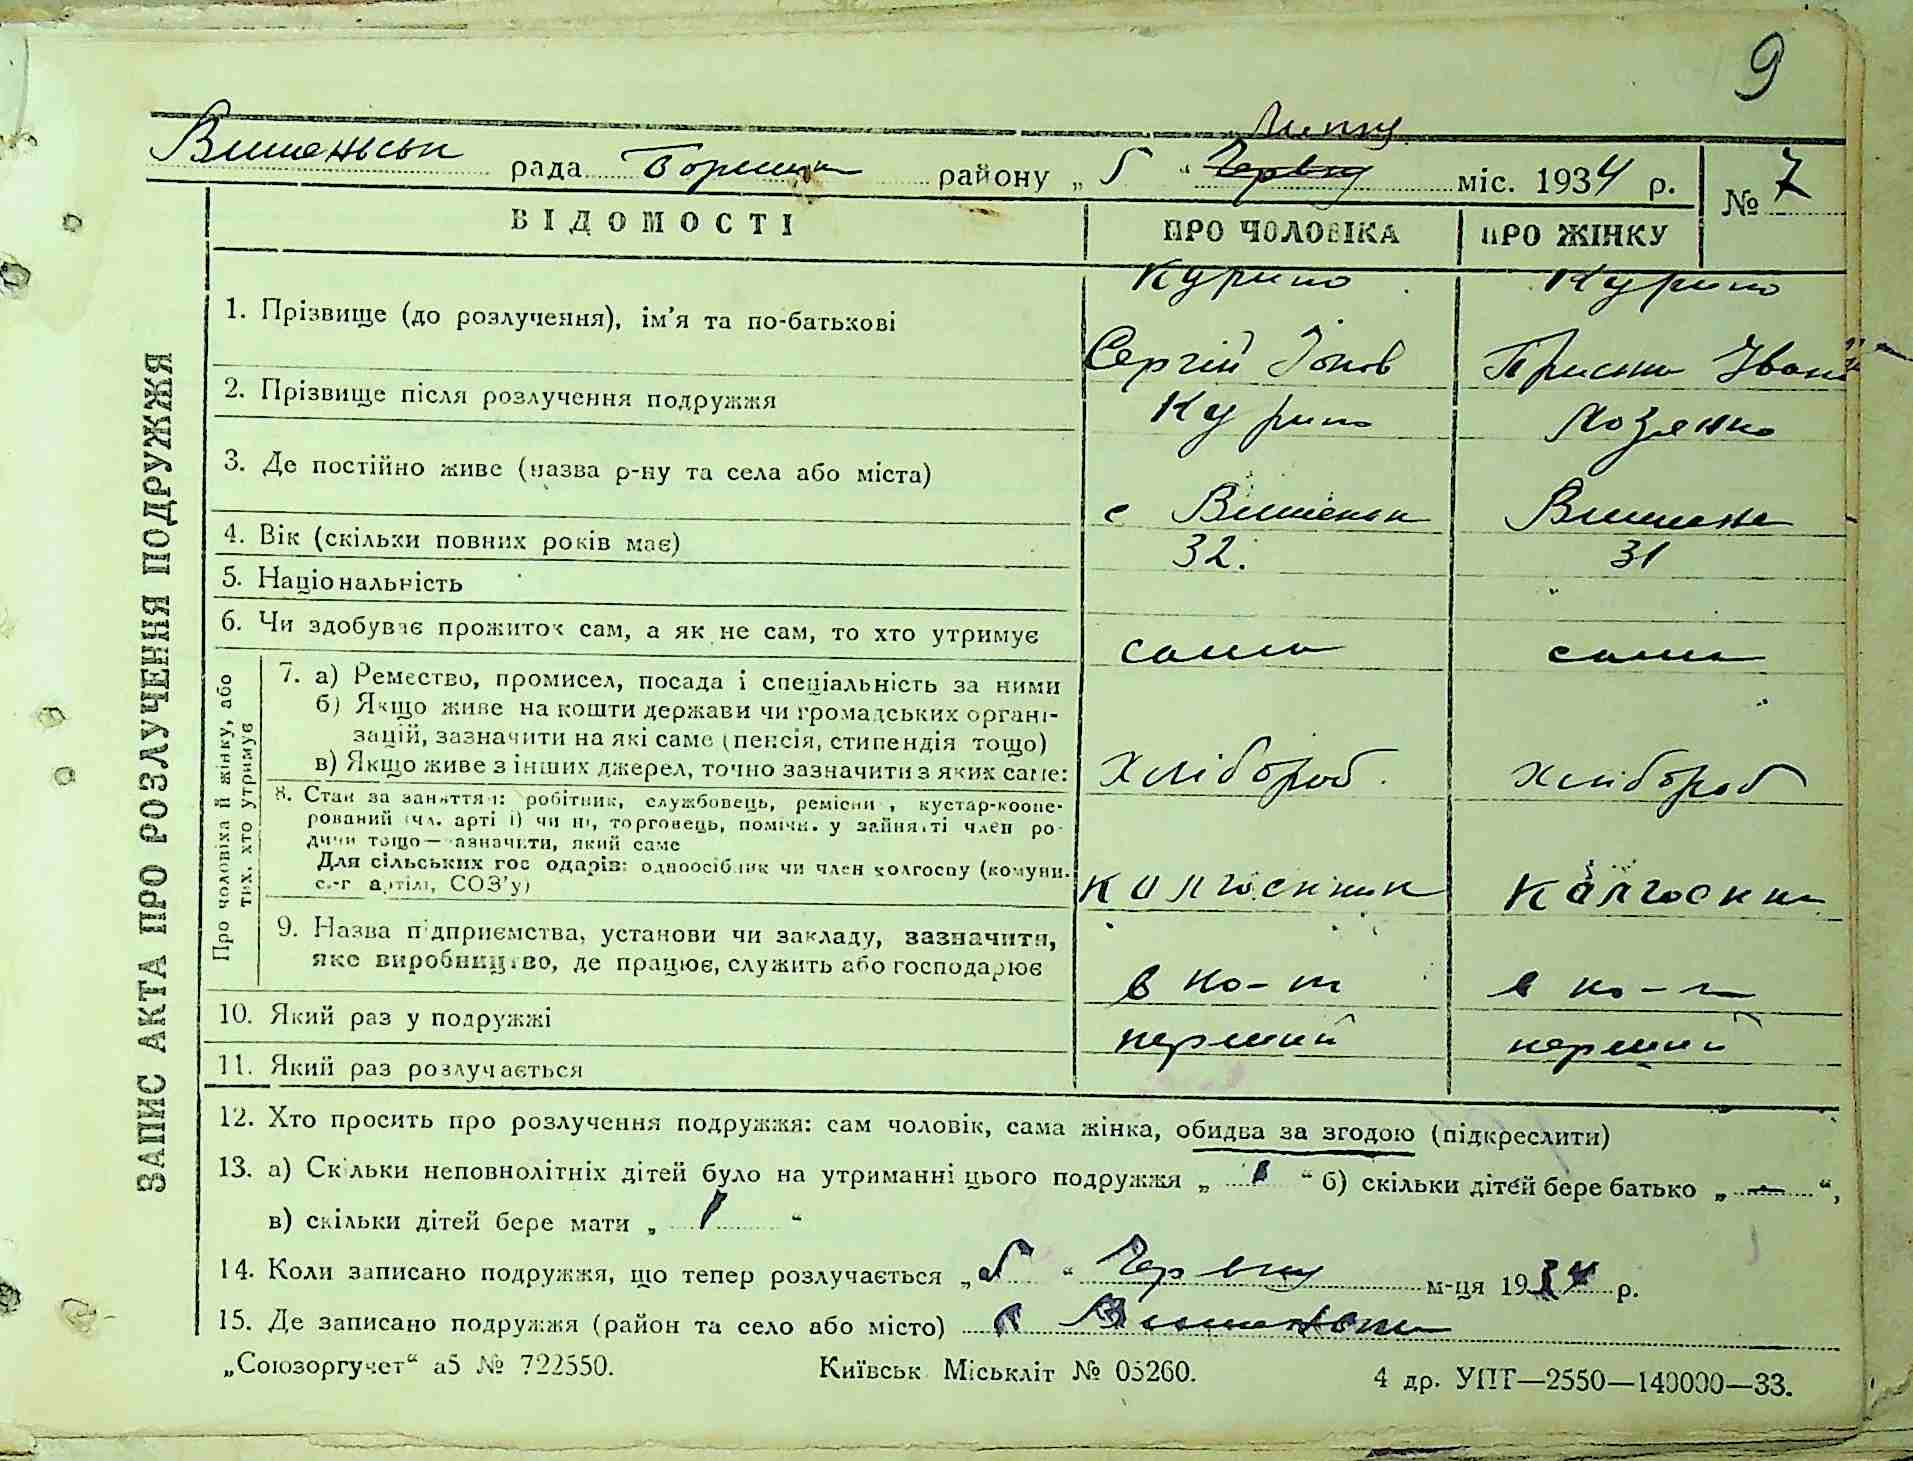 9
Липця
Вишеньськ рада Бориспіл району „ 5 “ Червня міс. 1934 р. № 7
ВІДОМОСТІ ПРО ЧОЛОВІКА ПРО ЖІНКУ
ЗАПИС АКТА ПРО РОЗЛУЧЕННЯ ПОДРУЖЖЯ
Курило Курило
1. Прізвище (до розлучення), ім'я та по-батькові
Сергій Іонов Приська Іван
2. Прізвище після розлучення подружжя Курило Лозенко
3. Де постійно живе (назва р-ну та села або міста)
с Вишеньки Вишеньки
4. Вік (скільки повних років має) 32. 31
5. Національність
6. Чи здобуває прожиток сам, а як не сам, то хто утримує сама сама
Про чоловіка й жінку, або тих, хто утримує
7. а) Ремество, промисел, посада і спеціальність за ними
б) Якщо живе на кошти держави чи громадських органі-
зацій, зазначити на які саме (пенсія, стипендія тощо)
в) Якщо живе з інших джерел, точно зазначити з яких саме: Хлібороб хлібороб
8. Стан за заняттям: робітник, службовець, ремісник, кустар-коопе-
рований (чл. артілі) чи ні, торговець, помічн. у занятті член ро-
дини тощо — зазначити, який саме
Для сільських господарів: одноосібник чи член колгоспу (комуни,
с.-г артілі, СОЗ'у) колгоспник колгоспни
9. Назва підприємства, установи чи закладу, зазначити,
яке виробництво, де працює, служить або господарює
в ко-т в ко-т
10. Який раз у подружжі перший перший
11. Який раз розлучається
12. Хто просить про розлучення подружжя: сам чоловік, сама жінка, обидва за згодою (підкреслити)
13. а) Скільки неповнолітніх дітей було на утриманні цього подружжя „ 1 “ б) скільки дітей бере батько „ — “,
в) скільки дітей бере мати „ 1 “
14. Коли записано подружжя, що тепер розлучається „ 5 “ Червня м-ця 1934 р.
15. Де записано подружжя (район та село або місто) с Вишеньки
„Союзоргучет“ а5 № 722550. Київськ Міськліт № 05260. 4 др. УПТ—2550—140000—33.